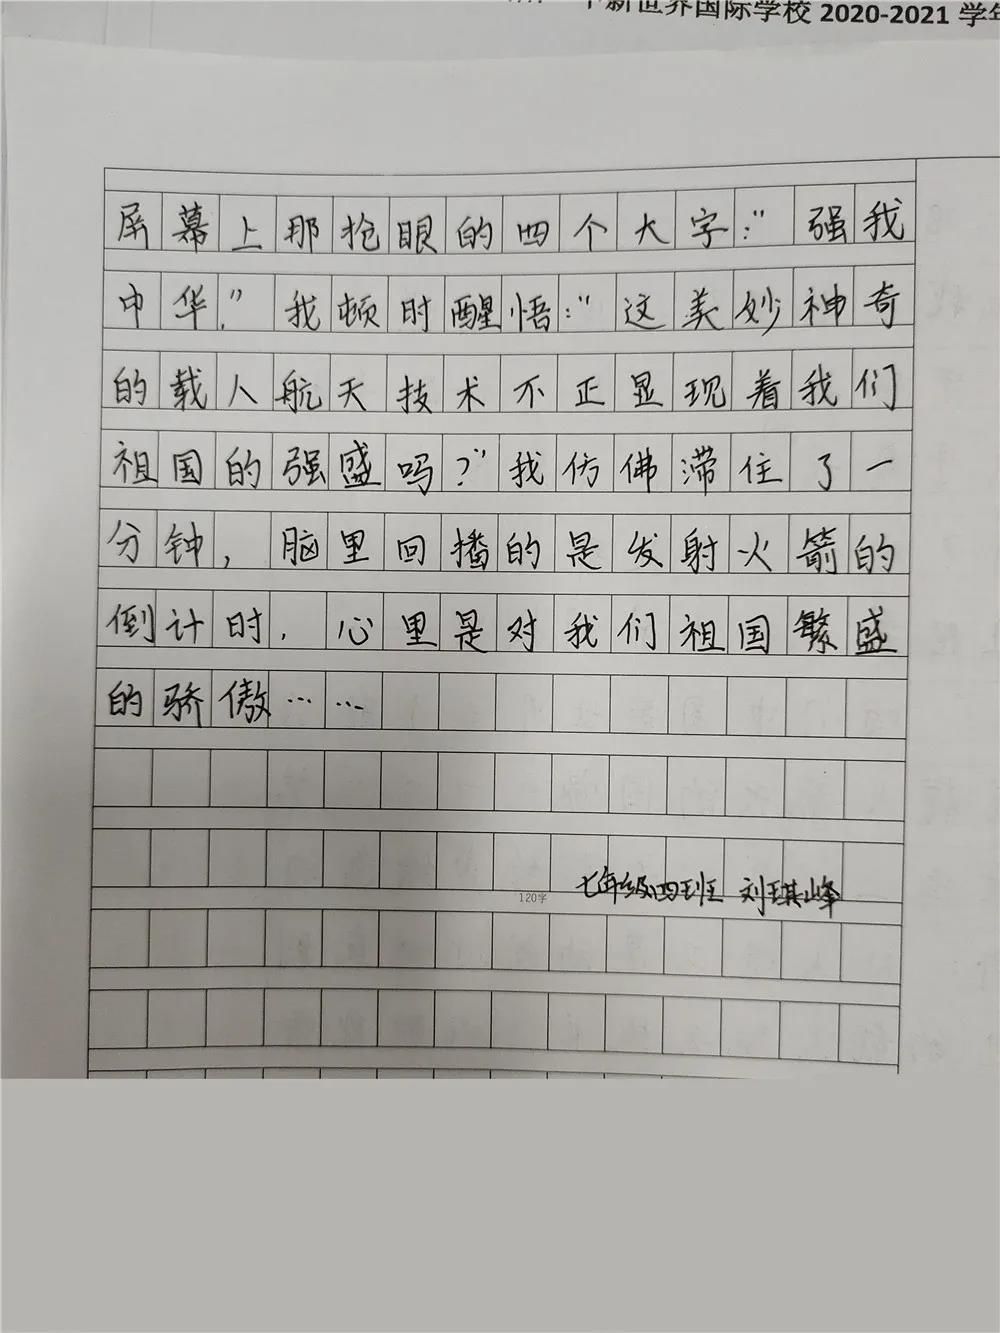 新世界国际学校 2020-2021 学年
屏幕上那抢眼的四个大字：“强我
中华”。我顿时醒悟：“这美妙神奇
的载人航天技术不正显现着我们
祖国的强盛吗？”我仿佛滞住了一
分钟，脑里回播的是发射火箭的
倒计时，心里是对我们祖国繁盛
的骄傲……
七年级四班 刘琪峰
120字